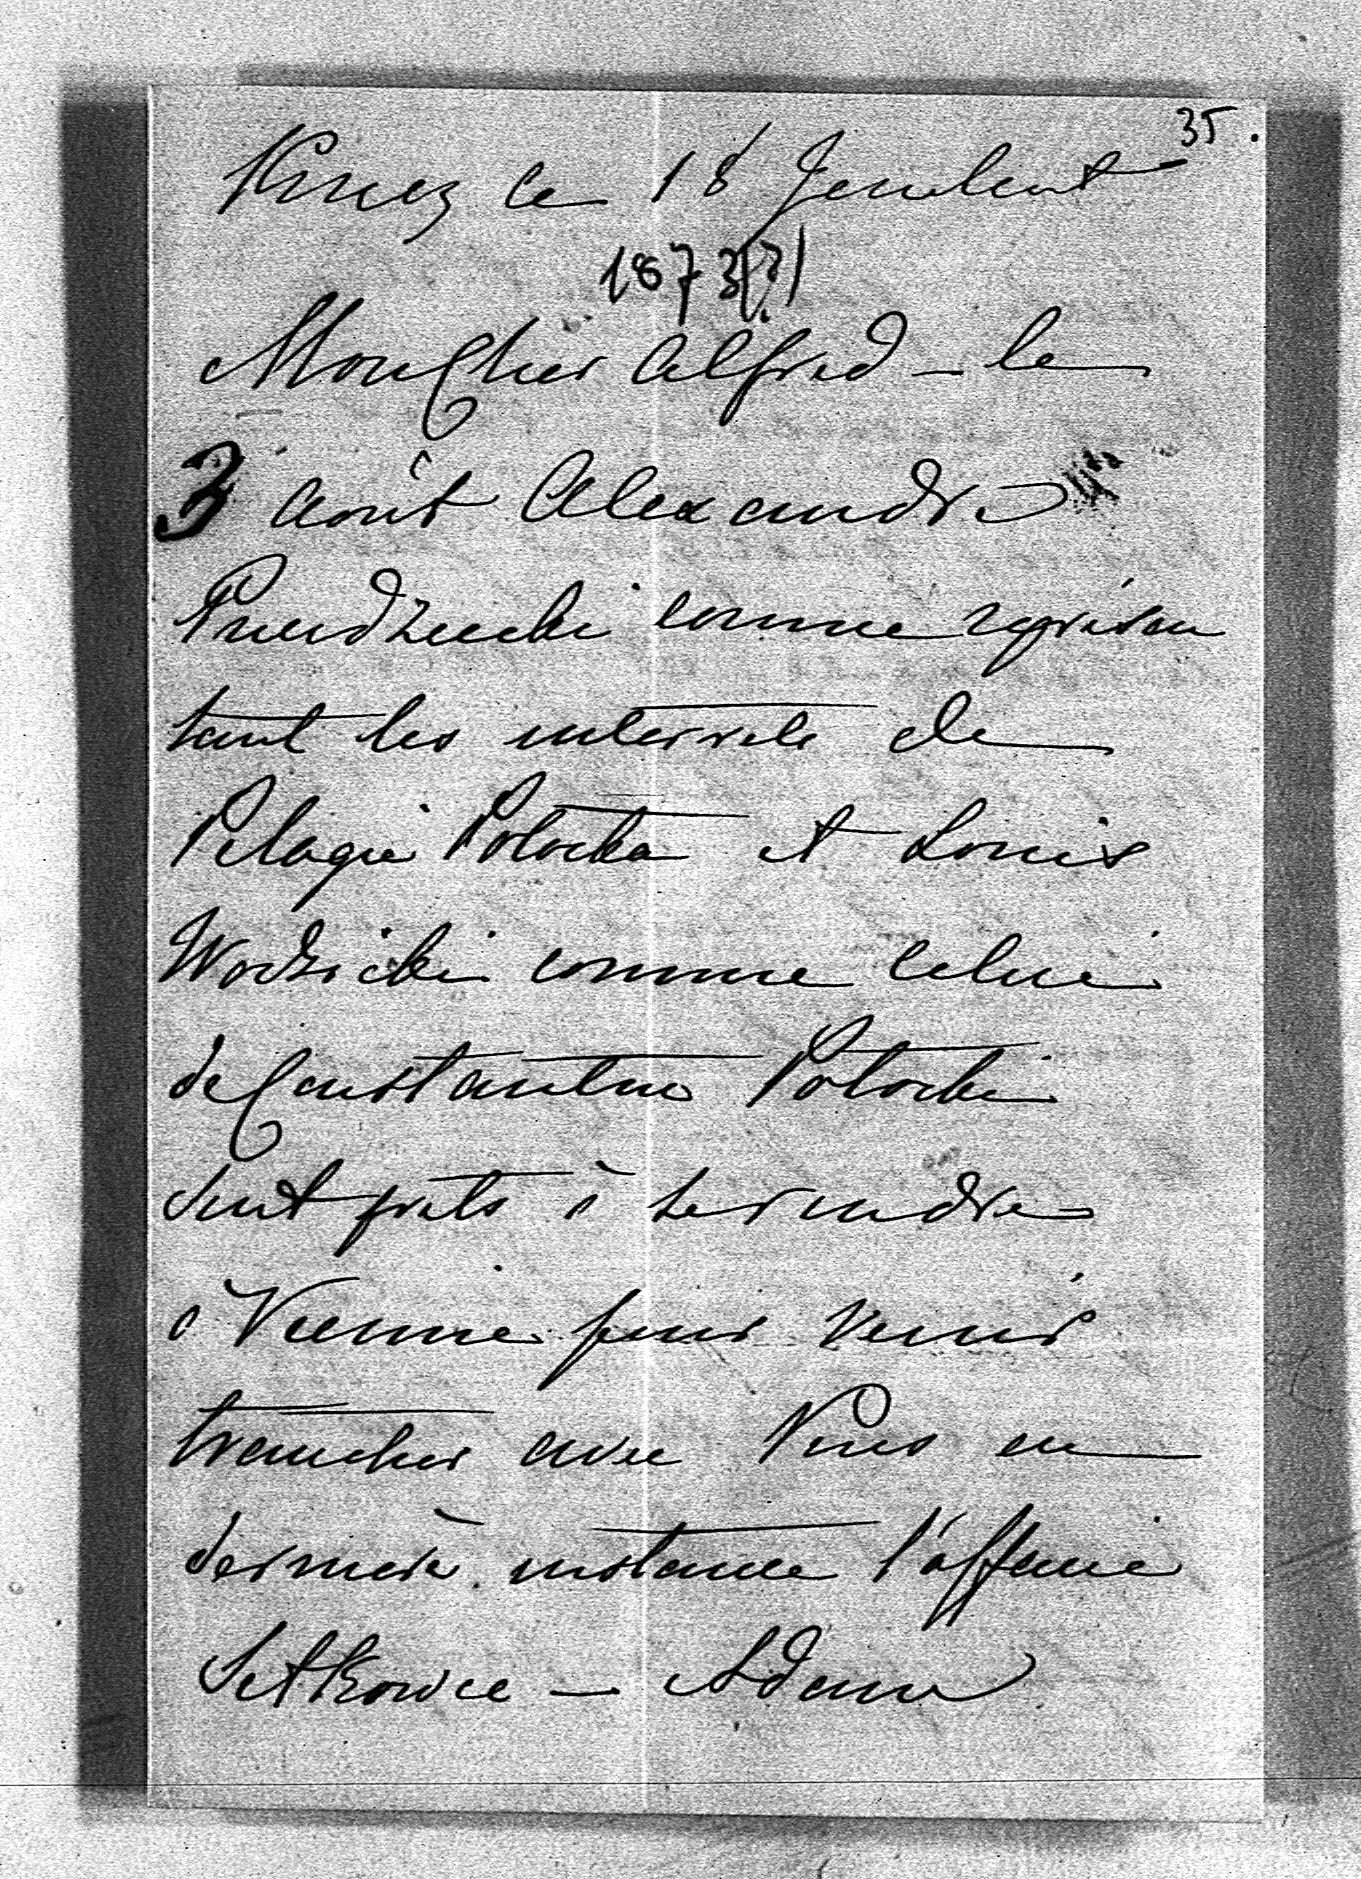 35.
ce 18
1873(?)
Mon Cher Alfred – le
3 août Alexandre
comme représen
tant les interrets de
Pelagie Potocka et Louis
Wodzicki comme celui
de Constantin Potocki
sont prets à se rendre
à Vienne pour venir
trancher avec Vous en
dernière instance l'affaire
Setkowce – Adam